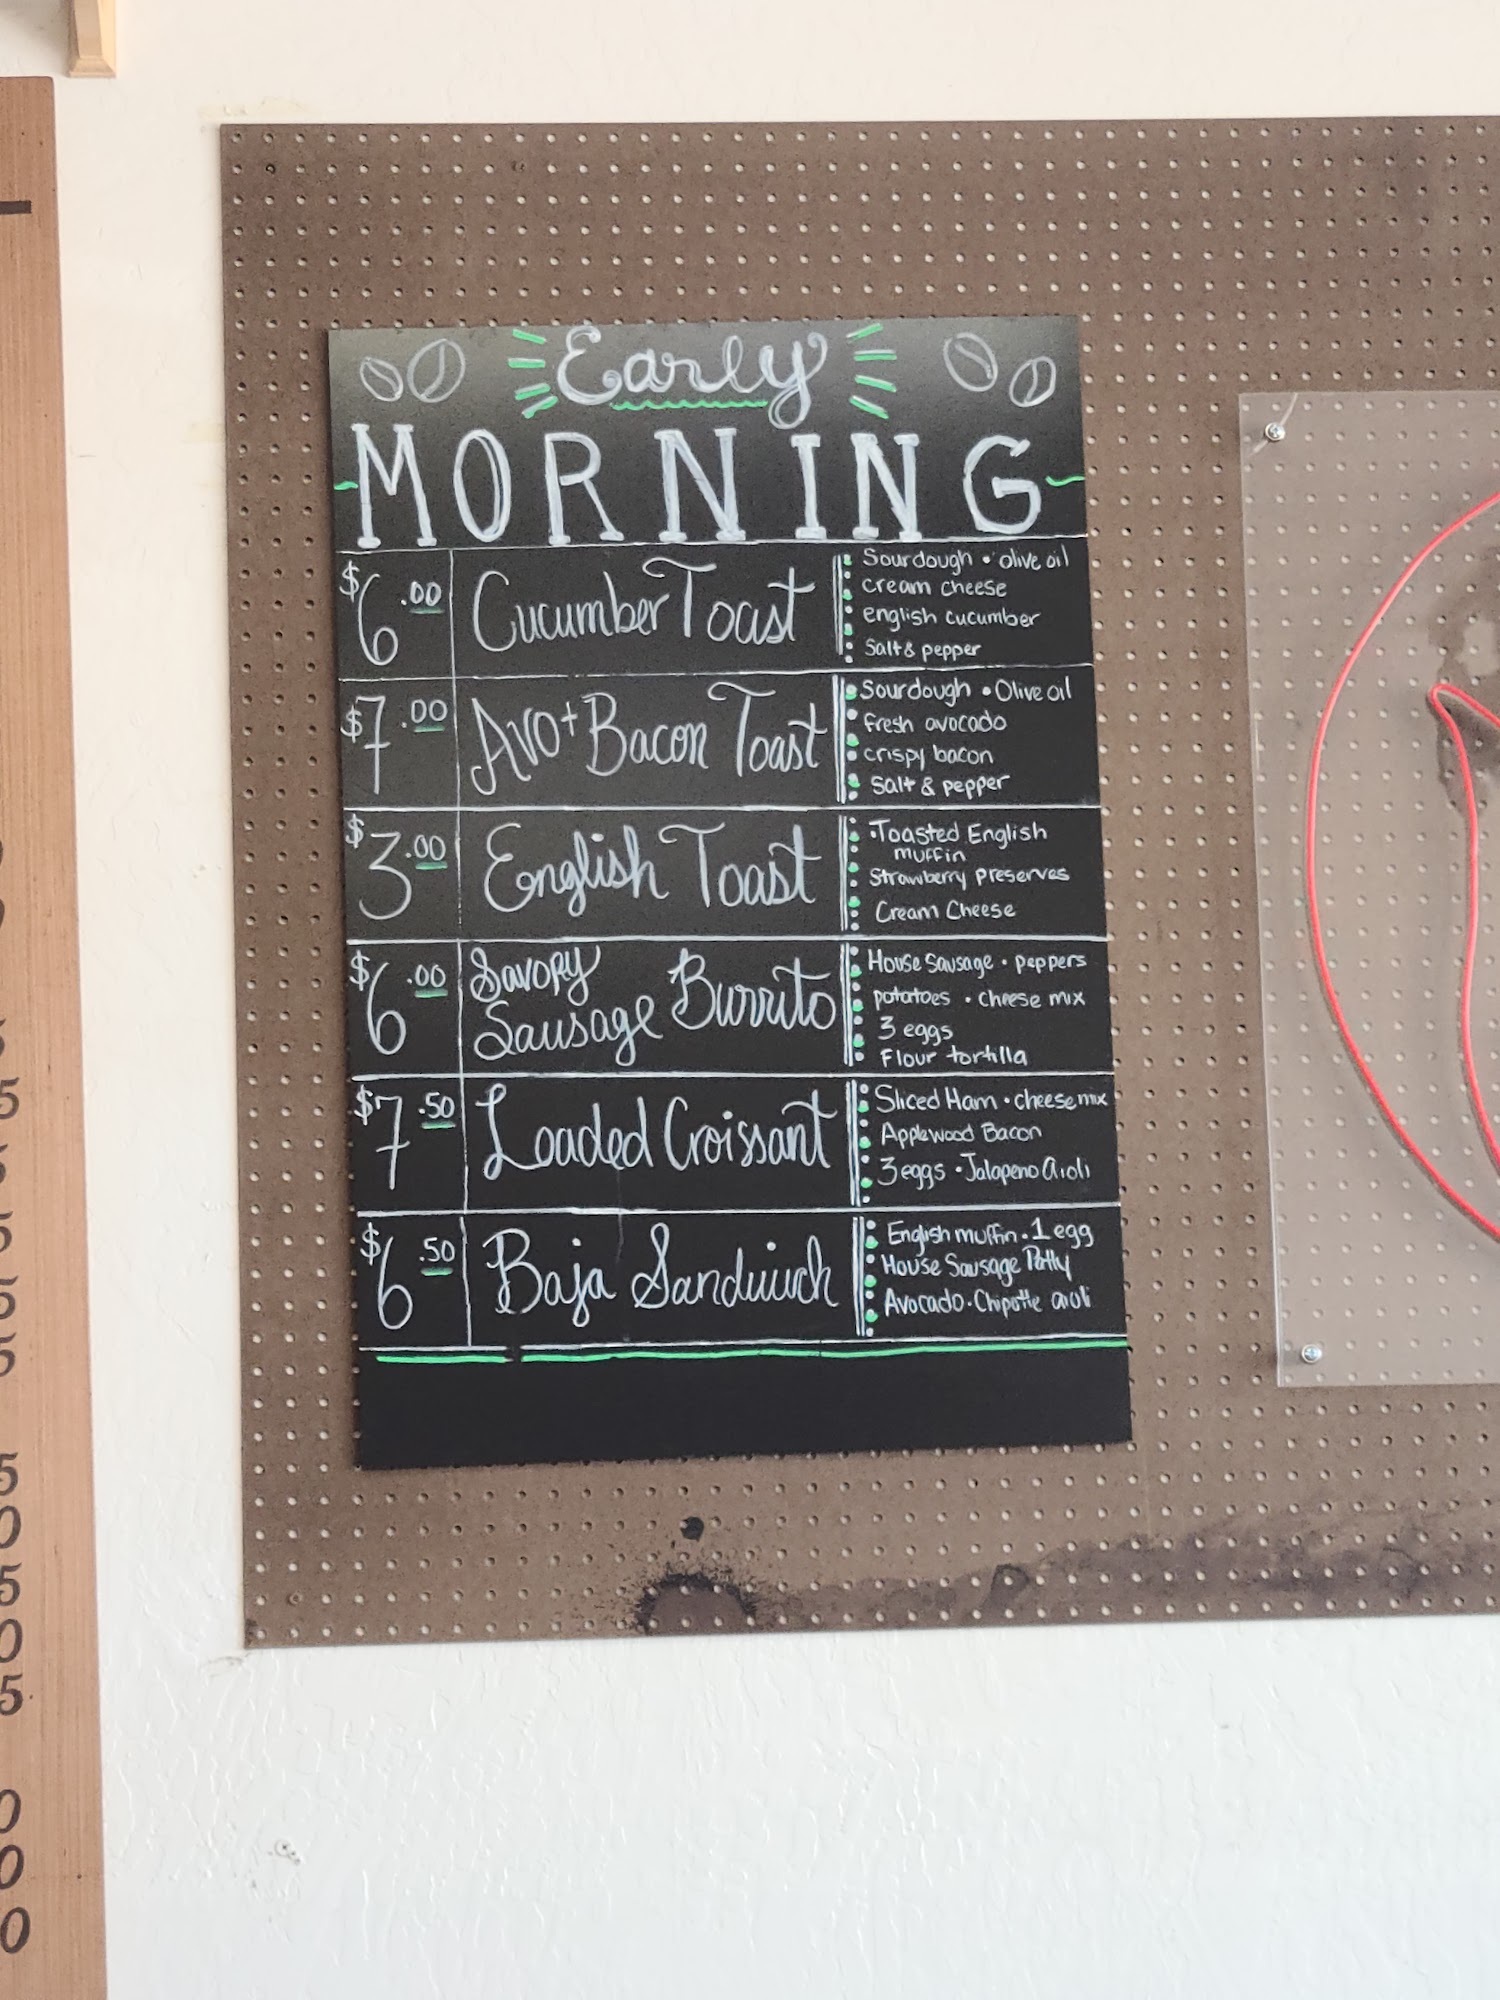 Early
MORNING
$6.00 Cucumber Toast
Sourdough • olive oil
cream cheese
english cucumber
Salt & pepper
$7.00 Avo + Bacon Toast
Sourdough • Olive oil
fresh avocado
crispy bacon
Salt & pepper
$3.00 English Toast
•Toasted English
muffin
Strawberry preserves
Cream Cheese
$6.00 Savory
Sausage Burrito
House Sausage • peppers
potatoes • cheese mix
3 eggs
Flour tortilla
$7.50 Loaded Croissant
Sliced Ham • cheese mix
Applewood Bacon
3 eggs • Jalapeno aioli
$6.50 Baja Sandwich
English muffin • 1 egg
House Sausage Patty
Avocado • Chipotle aioli